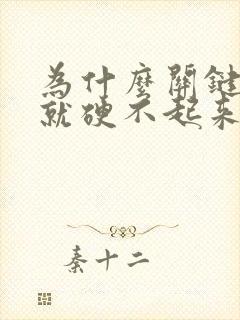 為什麼關鍵
就硬不起來
秦十二